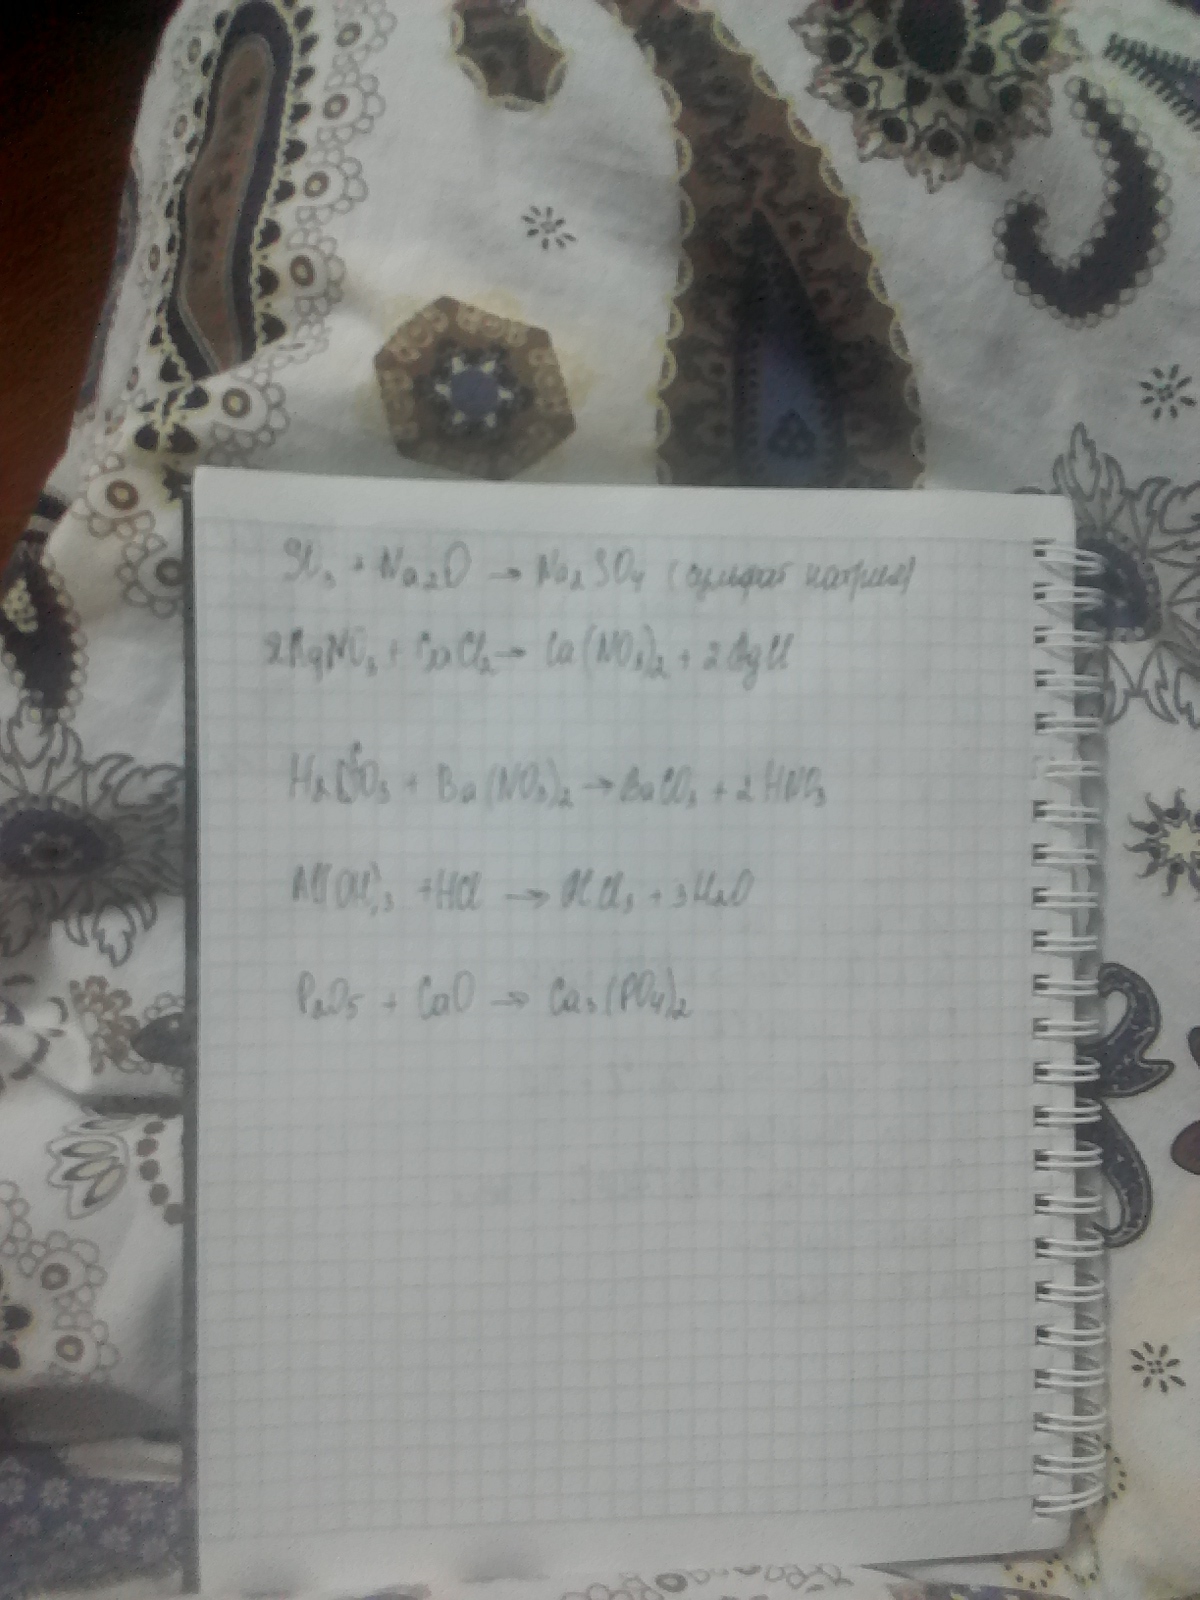 SO₃ + Na₂O → Na₂SO₄ (сульфат натрия)
2AgNO₃ + CaCl₂ → Ca(NO₃)₂ + 2AgCl
H₂CO₃ + Ba(NO₃)₂ → BaCO₃ + 2HNO₃
Al(OH)₃ + HCl → AlCl₃ + 3H₂O
P₂O₅ + CaO → Ca₃(PO₄)₂